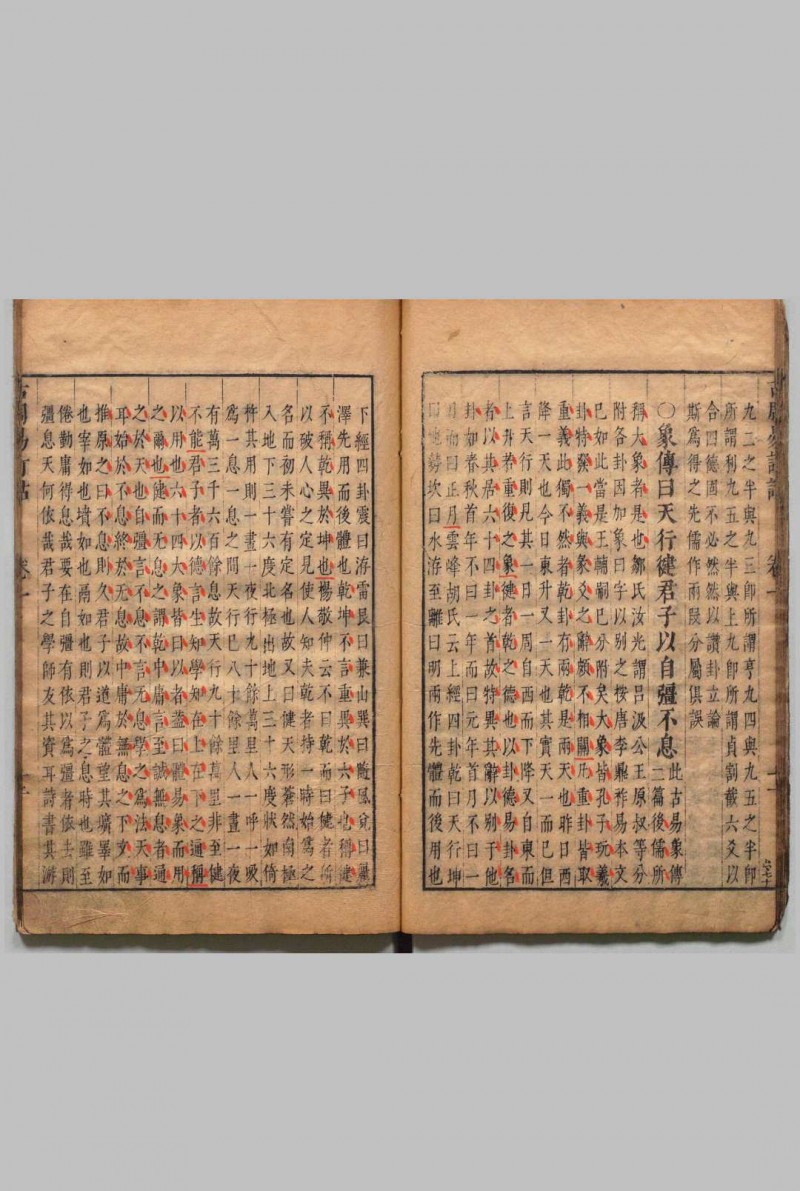 九二之半與九三卽所謂亨九四與九五之半卽
所謂利九五之半與上九卽所謂貞割截六爻以
合四德固不必然然以讚卦立論
斯爲得之先儒作兩段分屬俱誤
○象傳曰天行健君子以自彊不息
此古易象傳
二篇後儒所
稱大象者是也鄒氏汝光謂呂汲公王原叔等分
附各卦因加象曰字以別之按唐李鼎祚易本文
已如此當是王輔嗣已分附矣大象皆孔子玩羲
卦特發一義與彖爻之辭頗不相關凡重卦皆取
重義此獨不然者乾卦有兩乾是兩天也昨日西
降一天也今日東升又一天也其實天一而已但
言天行則見其一日一周自西而下降又自東而
上升若重復之象健者乾之德也以卦德易卦名
者以其居六十四卦之首故特異其辭以別于他
卦如春秋首年不曰一年而曰元年首月不曰一
月而曰正月雲峰胡氏云上經四卦乾曰天行坤
曰地勢坎曰水洊至離曰明兩作先體而後用也
下經四卦震曰洊雷艮曰兼山巽曰隨風兌曰麗
澤先用而後體也乾坤不言重異於六子也稱健
不稱乾異於坤也楊敬仲云不曰乾而曰健者所
以破人心之定見使人知夫乾者持一時始爲之
名而初未嘗有定名也故又曰健天形蒼然南極
入地下三十六度北極出地上三十六度狀如倚
杵其用則一晝一夜行九十餘萬里人一呼一吸
爲一息一息之間天行已八十餘里人一晝一夜
有萬三千六百餘息故天行九十餘萬里非至健
不能君子者以德言生知學知在上在下之通稱
以用也六十四大象皆曰以者蓋曰體易象而用
之爾也健而无息之謂乾中庸言至誠無息者通
之於天也自彊言不息不言无息學之爲法天事
耳始於不息終於无息故中庸於無息之下文而
推原之曰不息則久君子以道爲體望其壙睪如
也宰如也墳如也鬲如也則君子之息時也雖至
倦勤庸得息哉要在自彊有依以爲彊者依去則
彊息天何依哉君子之學師友其資耳詩書其游